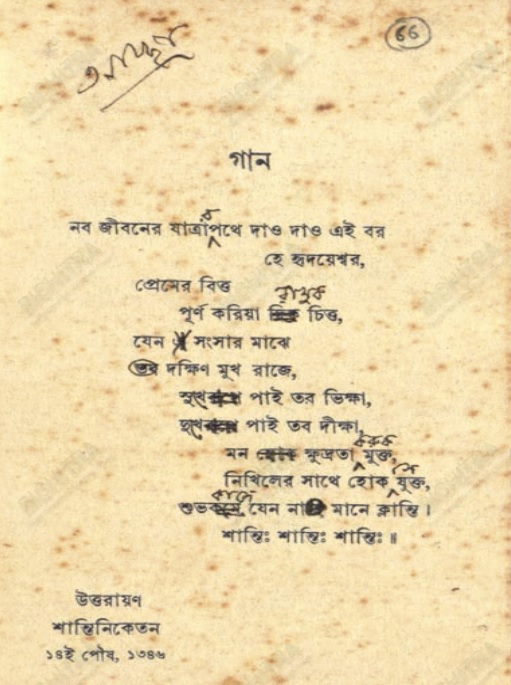 ৬৬
গান
র
নব জীবনের যাত্রাপথে দাও দাও এই বর
হে হৃদয়েশ্বর,
প্রেমের বিত্ত
রাখুক
পূর্ণ করিয়া চিত্ত,
যেন সংসার মাঝে
তব দক্ষিণ মুখ রাজে,
সুখে পাই তর ভিক্ষা,
দুখে পাই তব দীক্ষা,
করুক
মন ক্ষুদ্রতা মুক্ত,
সে
নিখিলের সাথে হোক যুক্ত,
কাজে
শুভ যেন না মানে ক্লান্তি।
শান্তিঃ শান্তিঃ শান্তিঃ॥
উত্তরায়ণ
শান্তিনিকেতন
১৪ই পৌষ, ১৩৪৬